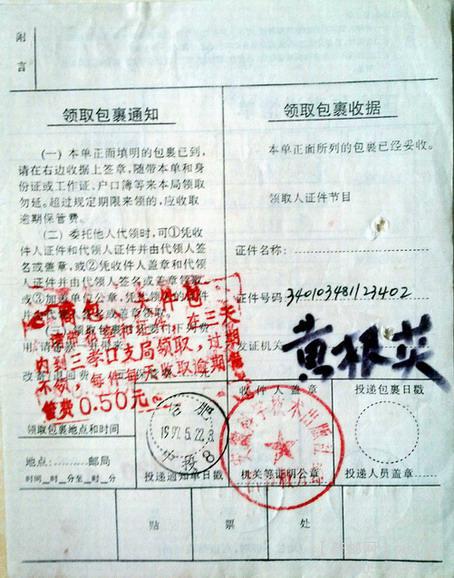 附
言
领取包裹通知
(一) 本单正面填明的包裹已到,
请在右边收据上签章, 随带本单和身
份证或工作证、户口簿等来本局领取
勿延。超过规定期限来领的, 应收取
逾期保管费。
(二) 委托他人代领时, 可①凭收
件人证件和代领人证件并由代领人签
名或盖章, 或②凭收件人盖章和代领
人证件并由代领人签名或盖章领取,
或③加盖单位公章,
在三天
内到三孝口支局领取, 过期
不领, 每件每天收取逾期保
管费0.50元
领取包裹地点和时间
地点: ………邮局
时间__时__分至__时__分
领取包裹收据
本单正面所列的包裹已经妥收。
领取人证件节目
证件名称:
证件号码 340103481123402
发证机关
黄根英
收件人盖章
投递包裹日戳
合肥
投
8
投递通知单日戳
机关等证明公章
投递人员盖章……
贴
票
处